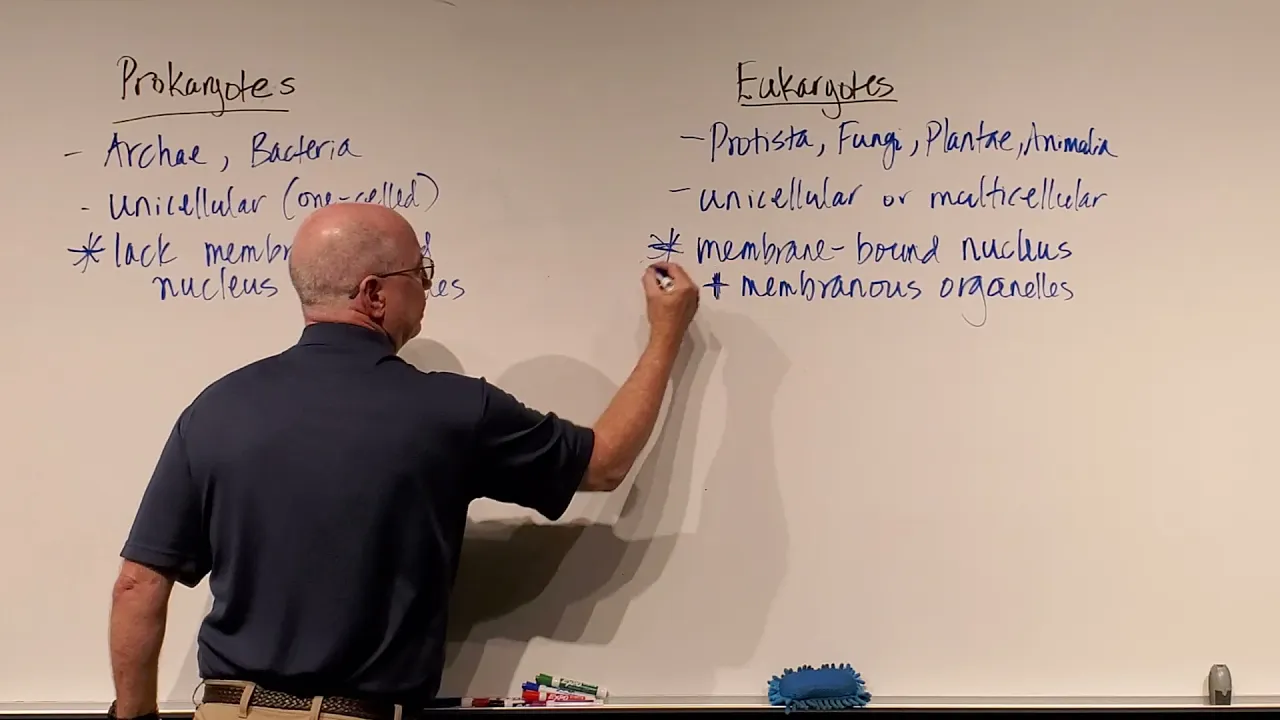 Prokaryotes
- Archae, Bacteria
- Unicellular (one-celled)
* lack
nucleus
Eukaryotes
- Protista, Fungi, Plantae, Animalia
- unicellular or multicellular
* membrane-bound nucleus
+ membranous organelles
EXPO